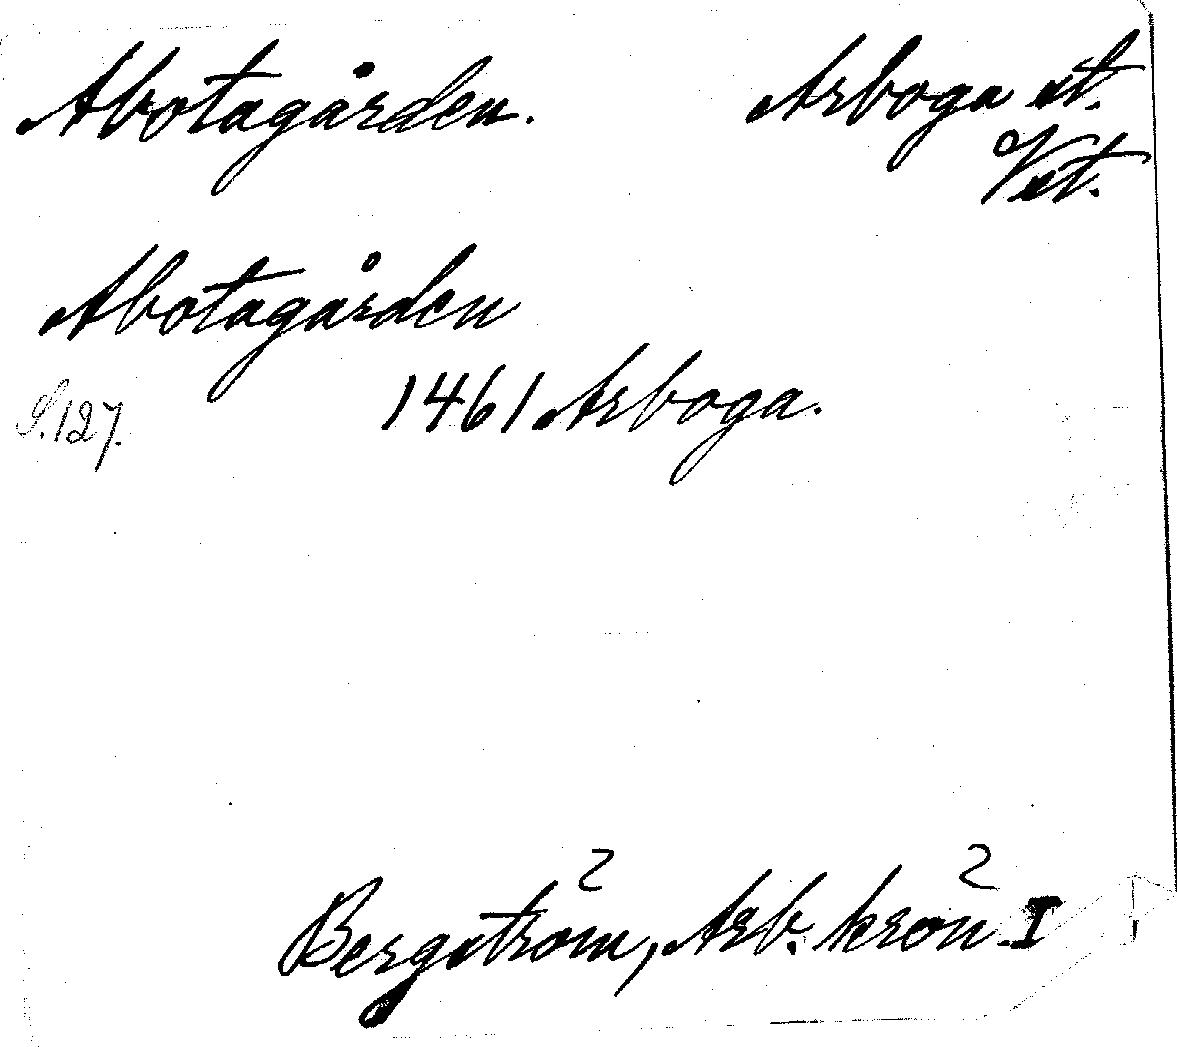 Abotagården.
Arboga st.
Vst.
Abotagården
S.127.
1461 Arboga.
Bergström, Arb. krön. I